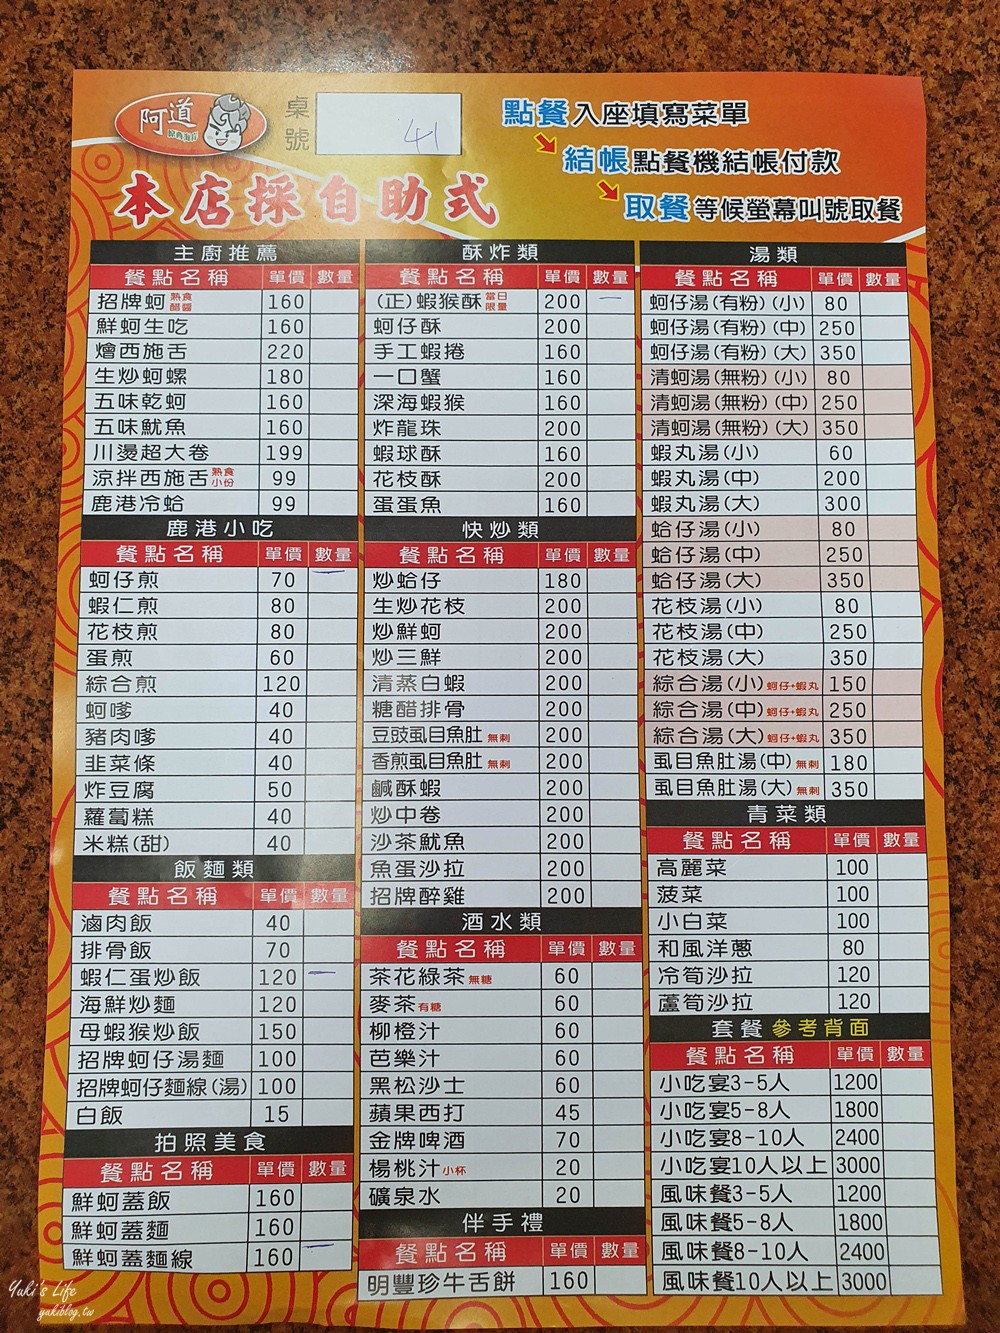 阿道
蚵西海岸
桌號 41
點餐 入座填寫菜單
結帳 點餐機結帳付款
取餐 等候螢幕叫號取餐
本店採自助式
主廚推薦
餐點名稱 單價 數量
招牌蚵 熱食 醋醬 160
鮮蚵生吃 160
燴西施舌 220
生炒蚵螺 180
五味乾蚵 160
五味魷魚 160
川燙超大卷 199
涼拌西施舌 熱食 小份 99
鹿港冷蛤 99
鹿港小吃
餐點名稱 單價 數量
蚵仔煎 70 一
蝦仁煎 80
花枝煎 80
蛋煎 60
綜合煎 120
蚵嗲 40
豬肉嗲 40
韭菜條 40
炸豆腐 50
蘿蔔糕 40
米糕(甜) 40
飯麵類
餐點名稱 單價 數量
滷肉飯 40
排骨飯 70
蝦仁蛋炒飯 120 一
海鮮炒麵 120
母蝦猴炒飯 150
招牌蚵仔湯麵 100
招牌蚵仔麵線(湯) 100
白飯 15
拍照美食
餐點名稱 單價 數量
鮮蚵蓋飯 160
鮮蚵蓋麵 160
鮮蚵蓋麵線 160 一
酥炸類
餐點名稱 單價 數量
(正)蝦猴酥 當日 限量 200 一
蚵仔酥 200
手工蝦捲 160
一口蟹 160
深海蝦猴 160
炸龍珠 200
蝦球酥 160
花枝酥 200
蛋蛋魚 160
快炒類
餐點名稱 單價 數量
炒蛤仔 180
生炒花枝 200
炒鮮蚵 200
炒三鮮 200
清蒸白蝦 200
糖醋排骨 200
豆豉虱目魚肚 無刺 200
香煎虱目魚肚 無刺 200
鹹酥蝦 200
炒中卷 200
沙茶魷魚 200
魚蛋沙拉 200
招牌醉雞 200
酒水類
餐點名稱 單價 數量
茶花綠茶 無糖 60
麥茶 有糖 60
柳橙汁 60
芭樂汁 60
黑松沙士 60
蘋果西打 45
金牌啤酒 70
楊桃汁 小杯 20
礦泉水 20
伴手禮
餐點名稱 單價 數量
明豐珍牛舌餅 160
湯類
餐點名稱 單價 數量
蚵仔湯(有粉)(小) 80
蚵仔湯(有粉)(中) 250
蚵仔湯(有粉)(大) 350
清蚵湯(無粉)(小) 80
清蚵湯(無粉)(中) 250
清蚵湯(無粉)(大) 350
蝦丸湯(小) 60
蝦丸湯(中) 200
蝦丸湯(大) 300
蛤仔湯(小) 80
蛤仔湯(中) 250
蛤仔湯(大) 350
花枝湯(小) 80
花枝湯(中) 250
花枝湯(大) 350
綜合湯(小) 蚵仔+蝦丸 150
綜合湯(中) 蚵仔+蝦丸 250
綜合湯(大) 蚵仔+蝦丸 350
虱目魚肚湯(中) 無刺 180
虱目魚肚湯(大) 無刺 350
青菜類
餐點名稱 單價 數量
高麗菜 100
菠菜 100
小白菜 100
和風洋蔥 80
冷筍沙拉 120
蘆筍沙拉 120
套餐 參考背面
餐點名稱 單價 數量
小吃宴3-5人 1200
小吃宴5-8人 1800
小吃宴8-10人 2400
小吃宴10人以上 3000
風味餐3-5人 1200
風味餐5-8人 1800
風味餐8-10人 2400
風味餐10人以上 3000
Yuki's Life
yukiblog.tw